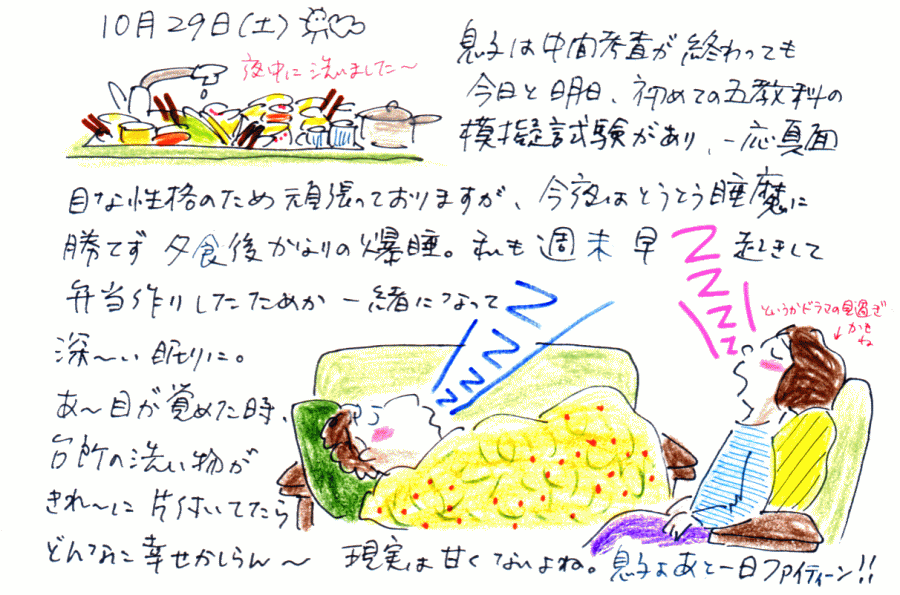 10月29日(土)
夜中に洗いました〜
息子は中間考査が終わっても
今日と明日、初めての五教科の
模擬試験があり、一応真面
目な性格のため頑張っておりますが、今夜はとうとう睡魔に
勝てず 夕食後かなりの爆睡。私も週末早起きして
弁当作りしたためか 一緒になって
深〜い眠りに。
あ〜目が覚めた時、
台所の洗い物が
きれ〜に片付いてたら
どんなに幸せかしらん〜 現実は甘くないよね。息子よあと一日ファイティーン!!
というかドラマの見過ぎ
かもね
ZZZZ
ZZZZ